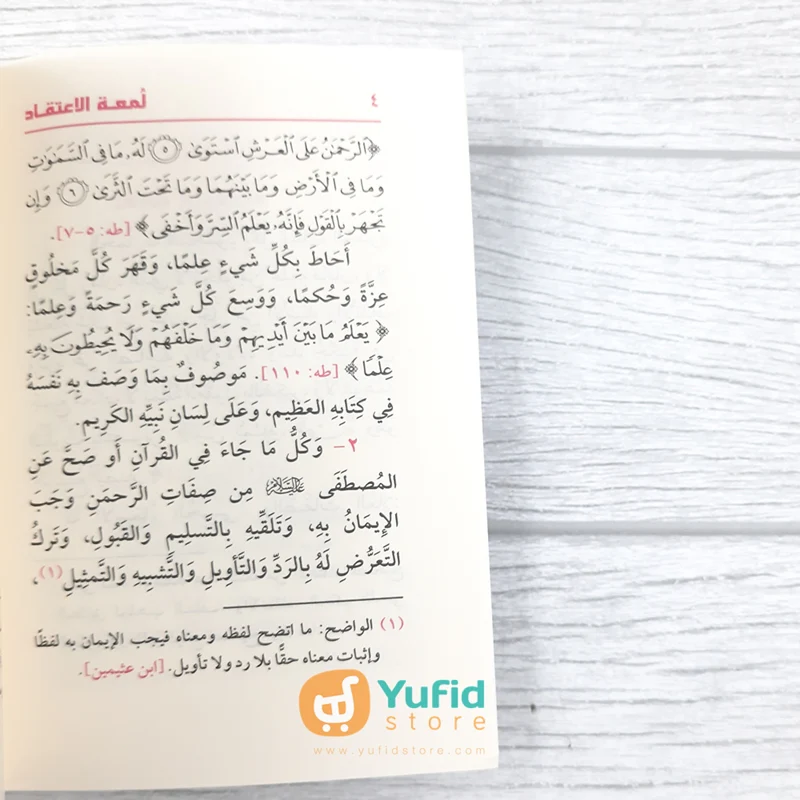 ٤ لُمعـة الاعتقـاد
﴿الرَّحْمَٰنُ عَلَى الْعَرْشِ اسْتَوَىٰ ۝٥ لَهُۥ مَا فِى السَّمَٰوَٰتِ
وَمَا فِى الْأَرْضِ وَمَا بَيْنَهُمَا وَمَا تَحْتَ الثَّرَىٰ ۝٦ وَإِن
تَجْهَرْ بِالْقَوْلِ فَإِنَّهُۥ يَعْلَمُ السِّرَّ وَأَخْفَى﴾ [طه: ٥-٧].
أَحَاطَ بِكُلِّ شَيءٍ عِلمًا، وَقَهَرَ كُلَّ مَخلُوقٍ
عِزَّةً وَحُكمًا، وَوَسِعَ كُلَّ شَيءٍ رَحمَةً وَعِلمًا:
﴿يَعْلَمُ مَا بَيْنَ أَيْدِيهِمْ وَمَا خَلْفَهُمْ وَلَا يُحِيطُونَ بِهِۦ
عِلْمًا﴾ [طه: ١١٠]. مَوصُوفٌ بِمَا وَصَفَ بِهِ نَفسَهُ
فِي كِتَابِهِ العَظِيم، وَعَلَى لِسَانِ نَبِيِّهِ الكَرِيمِ.
٢- وَكُلُّ مَا جَاءَ فِي القُرآنِ أَو صَحَّ عَنِ
المُصطَفَى عليه السلام مِن صِفَاتِ الرَّحمَنِ وَجَبَ
الإِيمَانُ بِهِ، وَتَلَقِّيهِ بِالتَّسلِيمِ وَالقَبُولِ، وَتَركُ
التَّعَرُّضِ لَهُ بِالرَدِّ وَالتَّأوِيلِ وَالتَّشبِيهِ وَالتَّمثِيلِ(١)،
(١) الواضح: ما اتضح لفظه ومعناه فيجب الإيمان به لفظًا
وإثبات معناه حقًّا بلا رد ولا تأويل. [ابن عثيمين].
Yufid
store
www.yufidstore.com